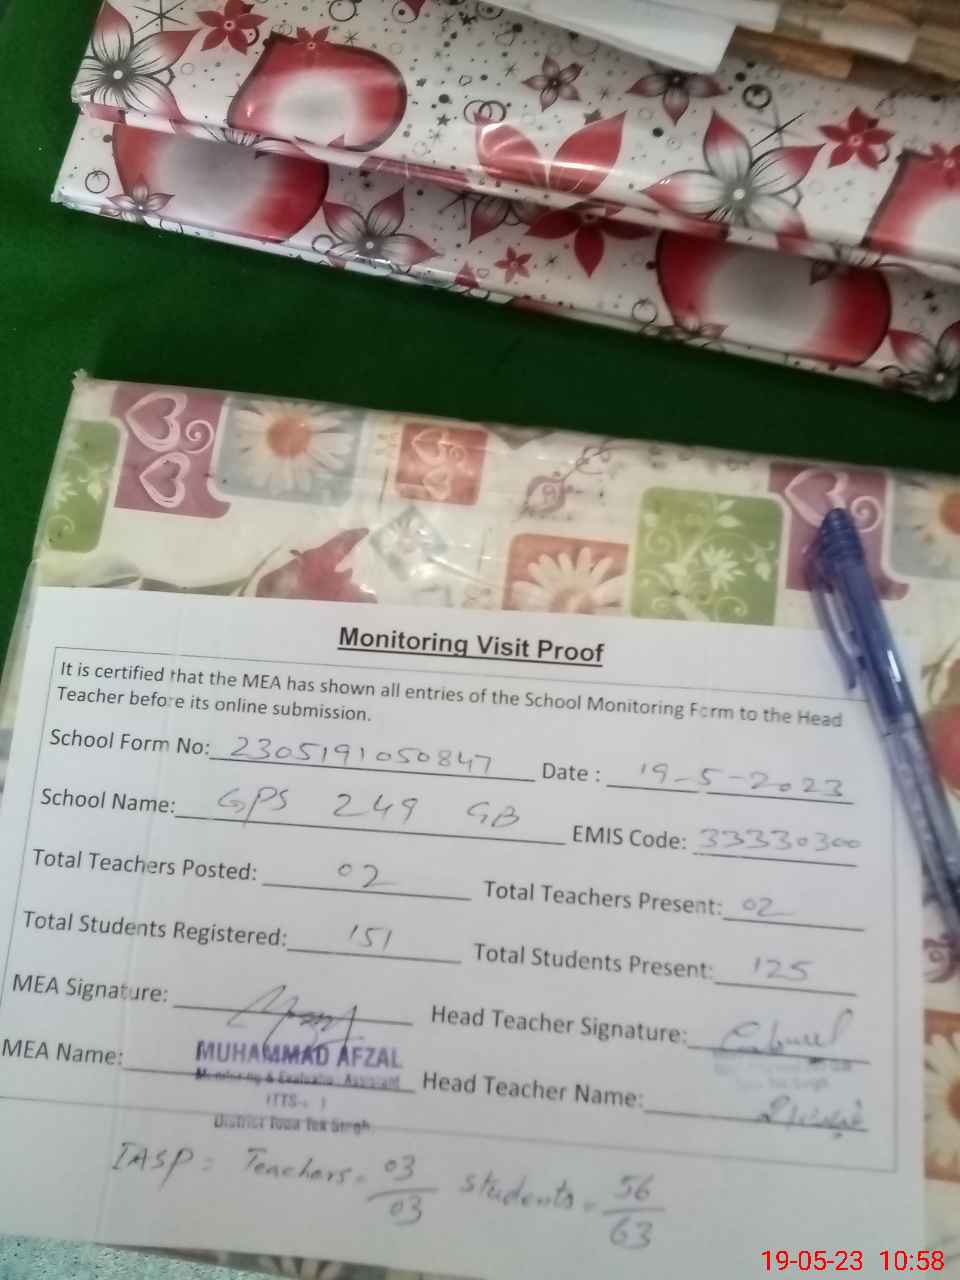 Monitoring Visit Proof
It is certified that the MEA has shown all entries of the School Monitoring Form to the Head
Teacher before its online submission.
School Form No: 2305191050847 Date : 19-5-2023
School Name: GPS 249 GB EMIS Code: 33330300
Total Teachers Posted: 02 Total Teachers Present: 02
Total Students Registered: 151 Total Students Present: 125
MEA Signature: Head Teacher Signature:
MEA Name: MUHAMMAD AFZAL Head Teacher Name:
Monitoring & Evaluation Assistant
District Toba Tek Singh
IASP = Teachers = 03/03 students = 56/63
19-05-23 10:58